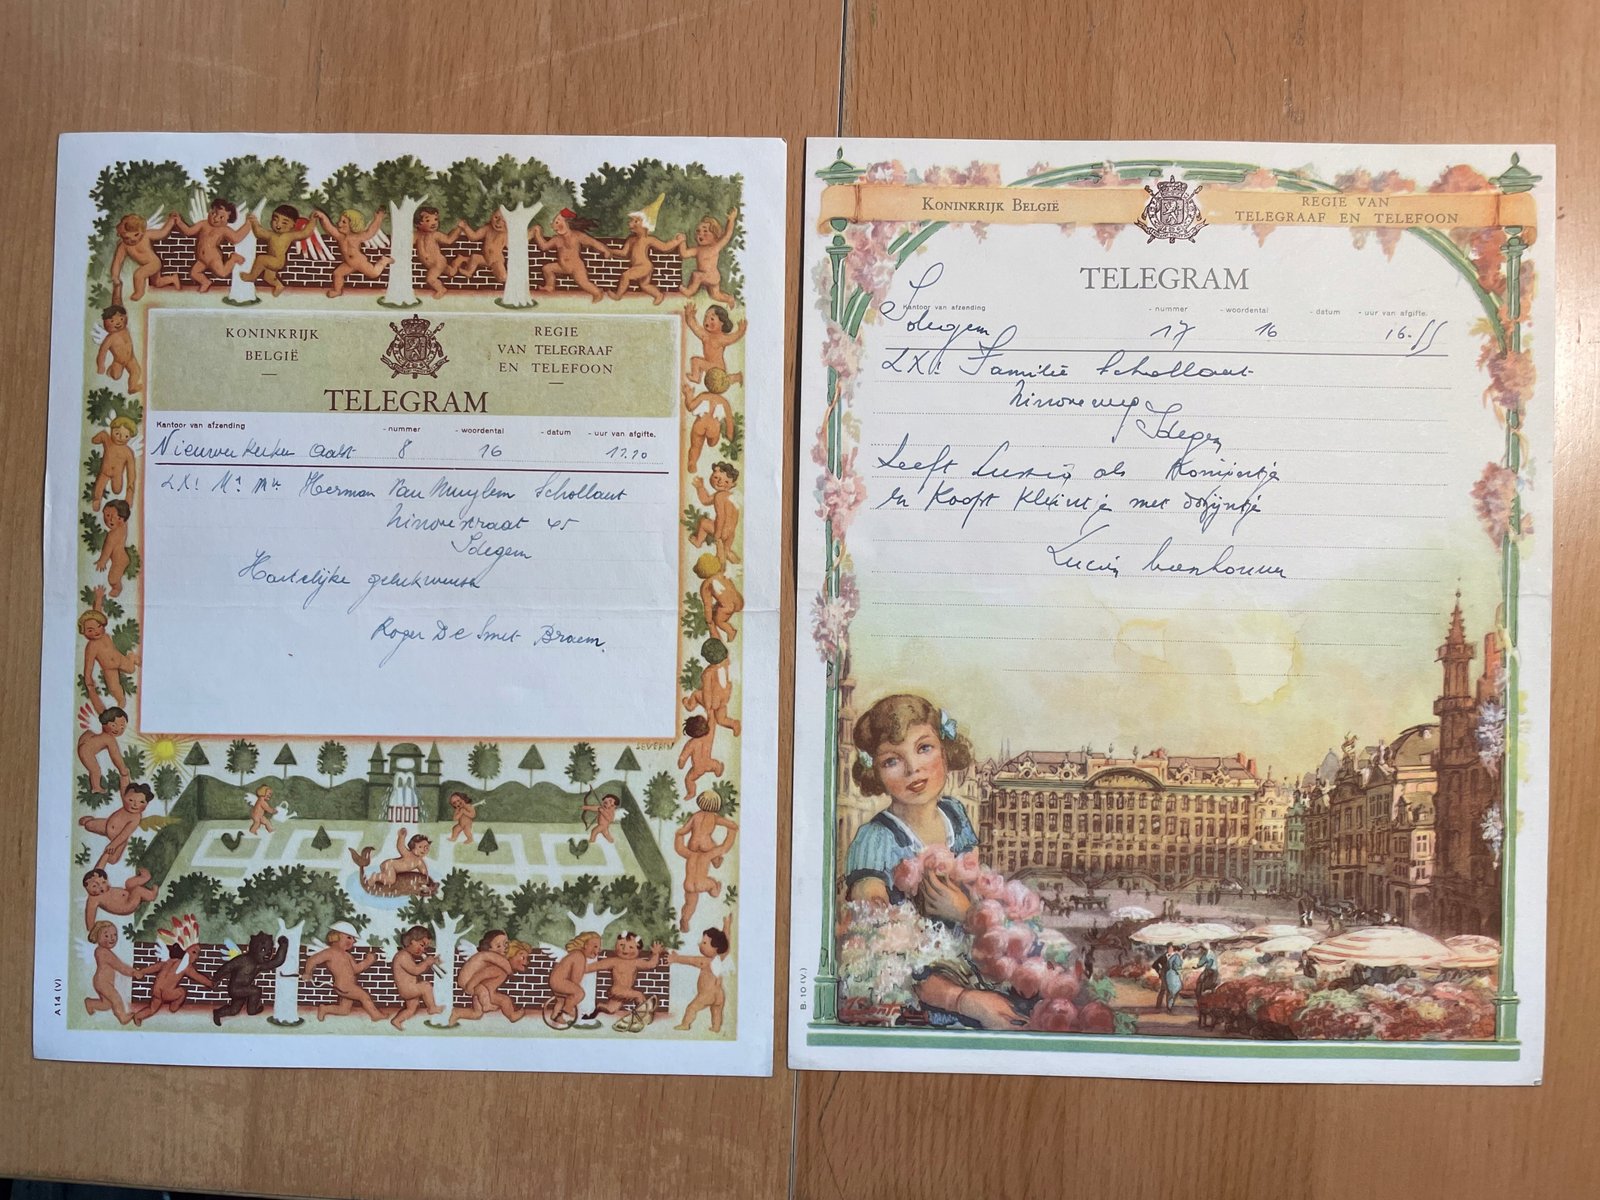 KONINKRIJK
BELGIË
REGIE
VAN TELEGRAAF
EN TELEFOON
TELEGRAM
Kantoor van afzending - nummer - woordental - datum - uur van afgifte.
Nieuwerkerken Aalst 8 16 11.10
LX1 Mr Mw Herman Van Muylem Schollaert
Ninovestraat 45
Idegem
Hartelijke gelukwensen
Roger De Smet Braem.
SEVERIN
A 14 (V)
KONINKRIJK BELGIË
REGIE VAN
TELEGRAAF EN TELEFOON
TELEGRAM
Kantoor van afzending - nummer - woordental - datum - uur van afgifte.
Idegem 17 16 16.55
LX1 Familie Schollaert
Ninoveweg
Idegem
Leeft Lustig als Konijntje
en Koopt Kleintje met dozijntje
B. 10 (V.)